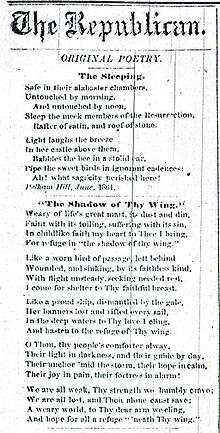 The Republican.
ORIGINAL POETRY.
The Sleeping.
Safe in their alabaster chambers,
Untouched by morning,
And untouched by noon,
Sleep the meek members of the Resurrection,
Rafter of satin, and roof of stone.
Light laughs the breeze
In her castle above them,
Babbles the bee in a stolid ear,
Pipe the sweet birds in ignorant cadences:
Ah! what sagacity perished here!
Pelham Hill, June, 1861.
"The Shadow of Thy Wing."
Weary of life's great mart, its dust and din,
Faint with its toiling, suffering with its sin,
In childlike faith my heart to Thee I bring,
For refuge in "the shadow of thy wing."
Like a worn bird of passage, left behind
Wounded, and sinking, by its faithless kind,
With flight unsteady, seeking needed rest,
I come for shelter to Thy faithful breast.
Like a proud ship, dismantled by the gale,
Her banners lost and rifted every sail,
In the deep waters to Thy love I cling,
And hasten to the refuge of Thy wing.
O Thou, thy people's comforter alway,
Their light in darkness, and their guide by day,
Their anchor 'mid the storm, their hope in calm,
Their joy in pain, their fortress in alarm!
We are all weak, Thy strength we humbly crave;
We are all lost, and Thou alone canst save;
A weary world, to Thy dear arm we cling,
And hope for all a refuge "neath Thy wing."